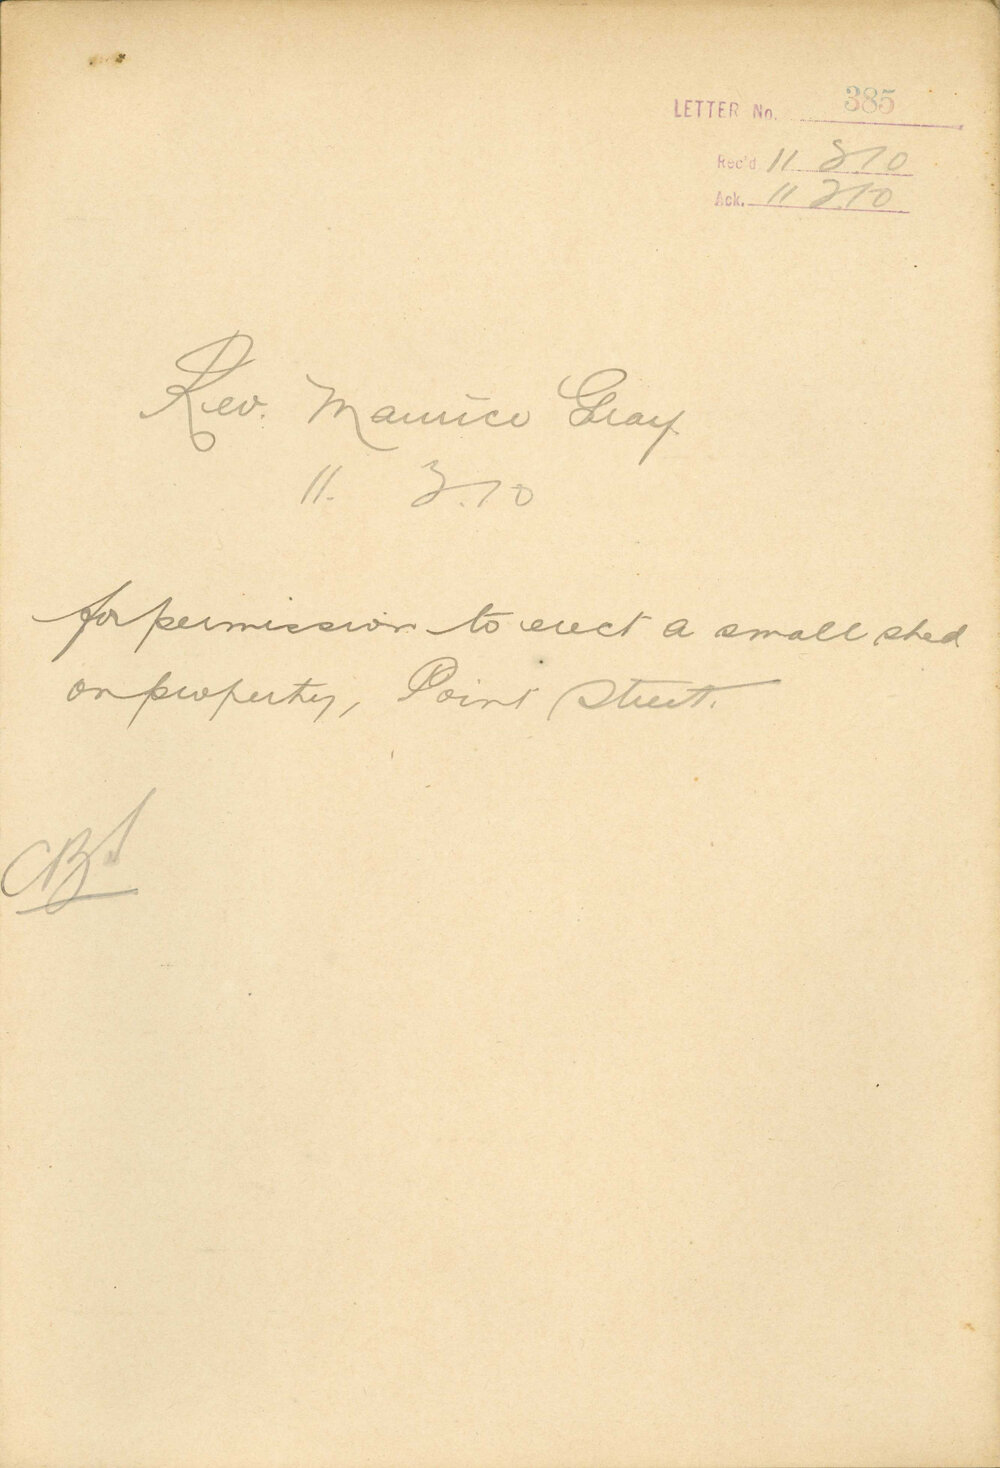 LETTER No. 385
Rec'd 11 3.10
Ack. 11 3.10
Rev. Maurice Gray
11. 3.10
for permission to erect a small shed
on property, Point Street.